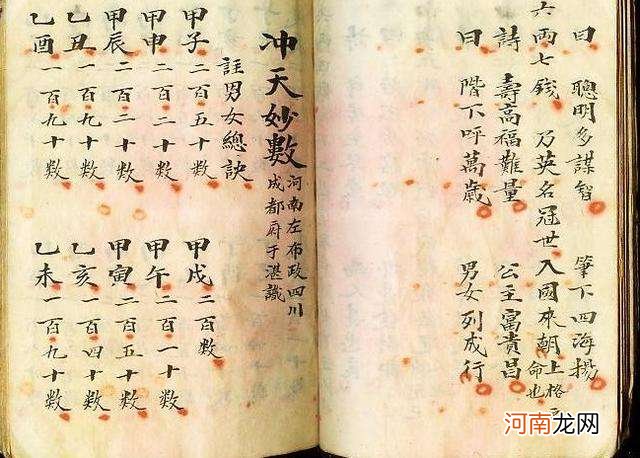 曰 聰明多謀智 筆下四海揚
六兩七錢 乃英名冠世 入國來朝 上格之命也
詩 壽高福難量 公主富貴昌
曰 階下呼萬歲 男女列成行
冲天妙數 河南左布政四川
成都府于湛識
註男女總訣
甲子 二百五十数 甲戌 二百数
甲申 二百一十数 甲午 二百一十数
甲辰 二百二十数 甲寅 二百五十数
乙丑 一百九十数 乙亥 一百四十数
乙酉 一百九十数 乙未 一百九十数
河南龙网